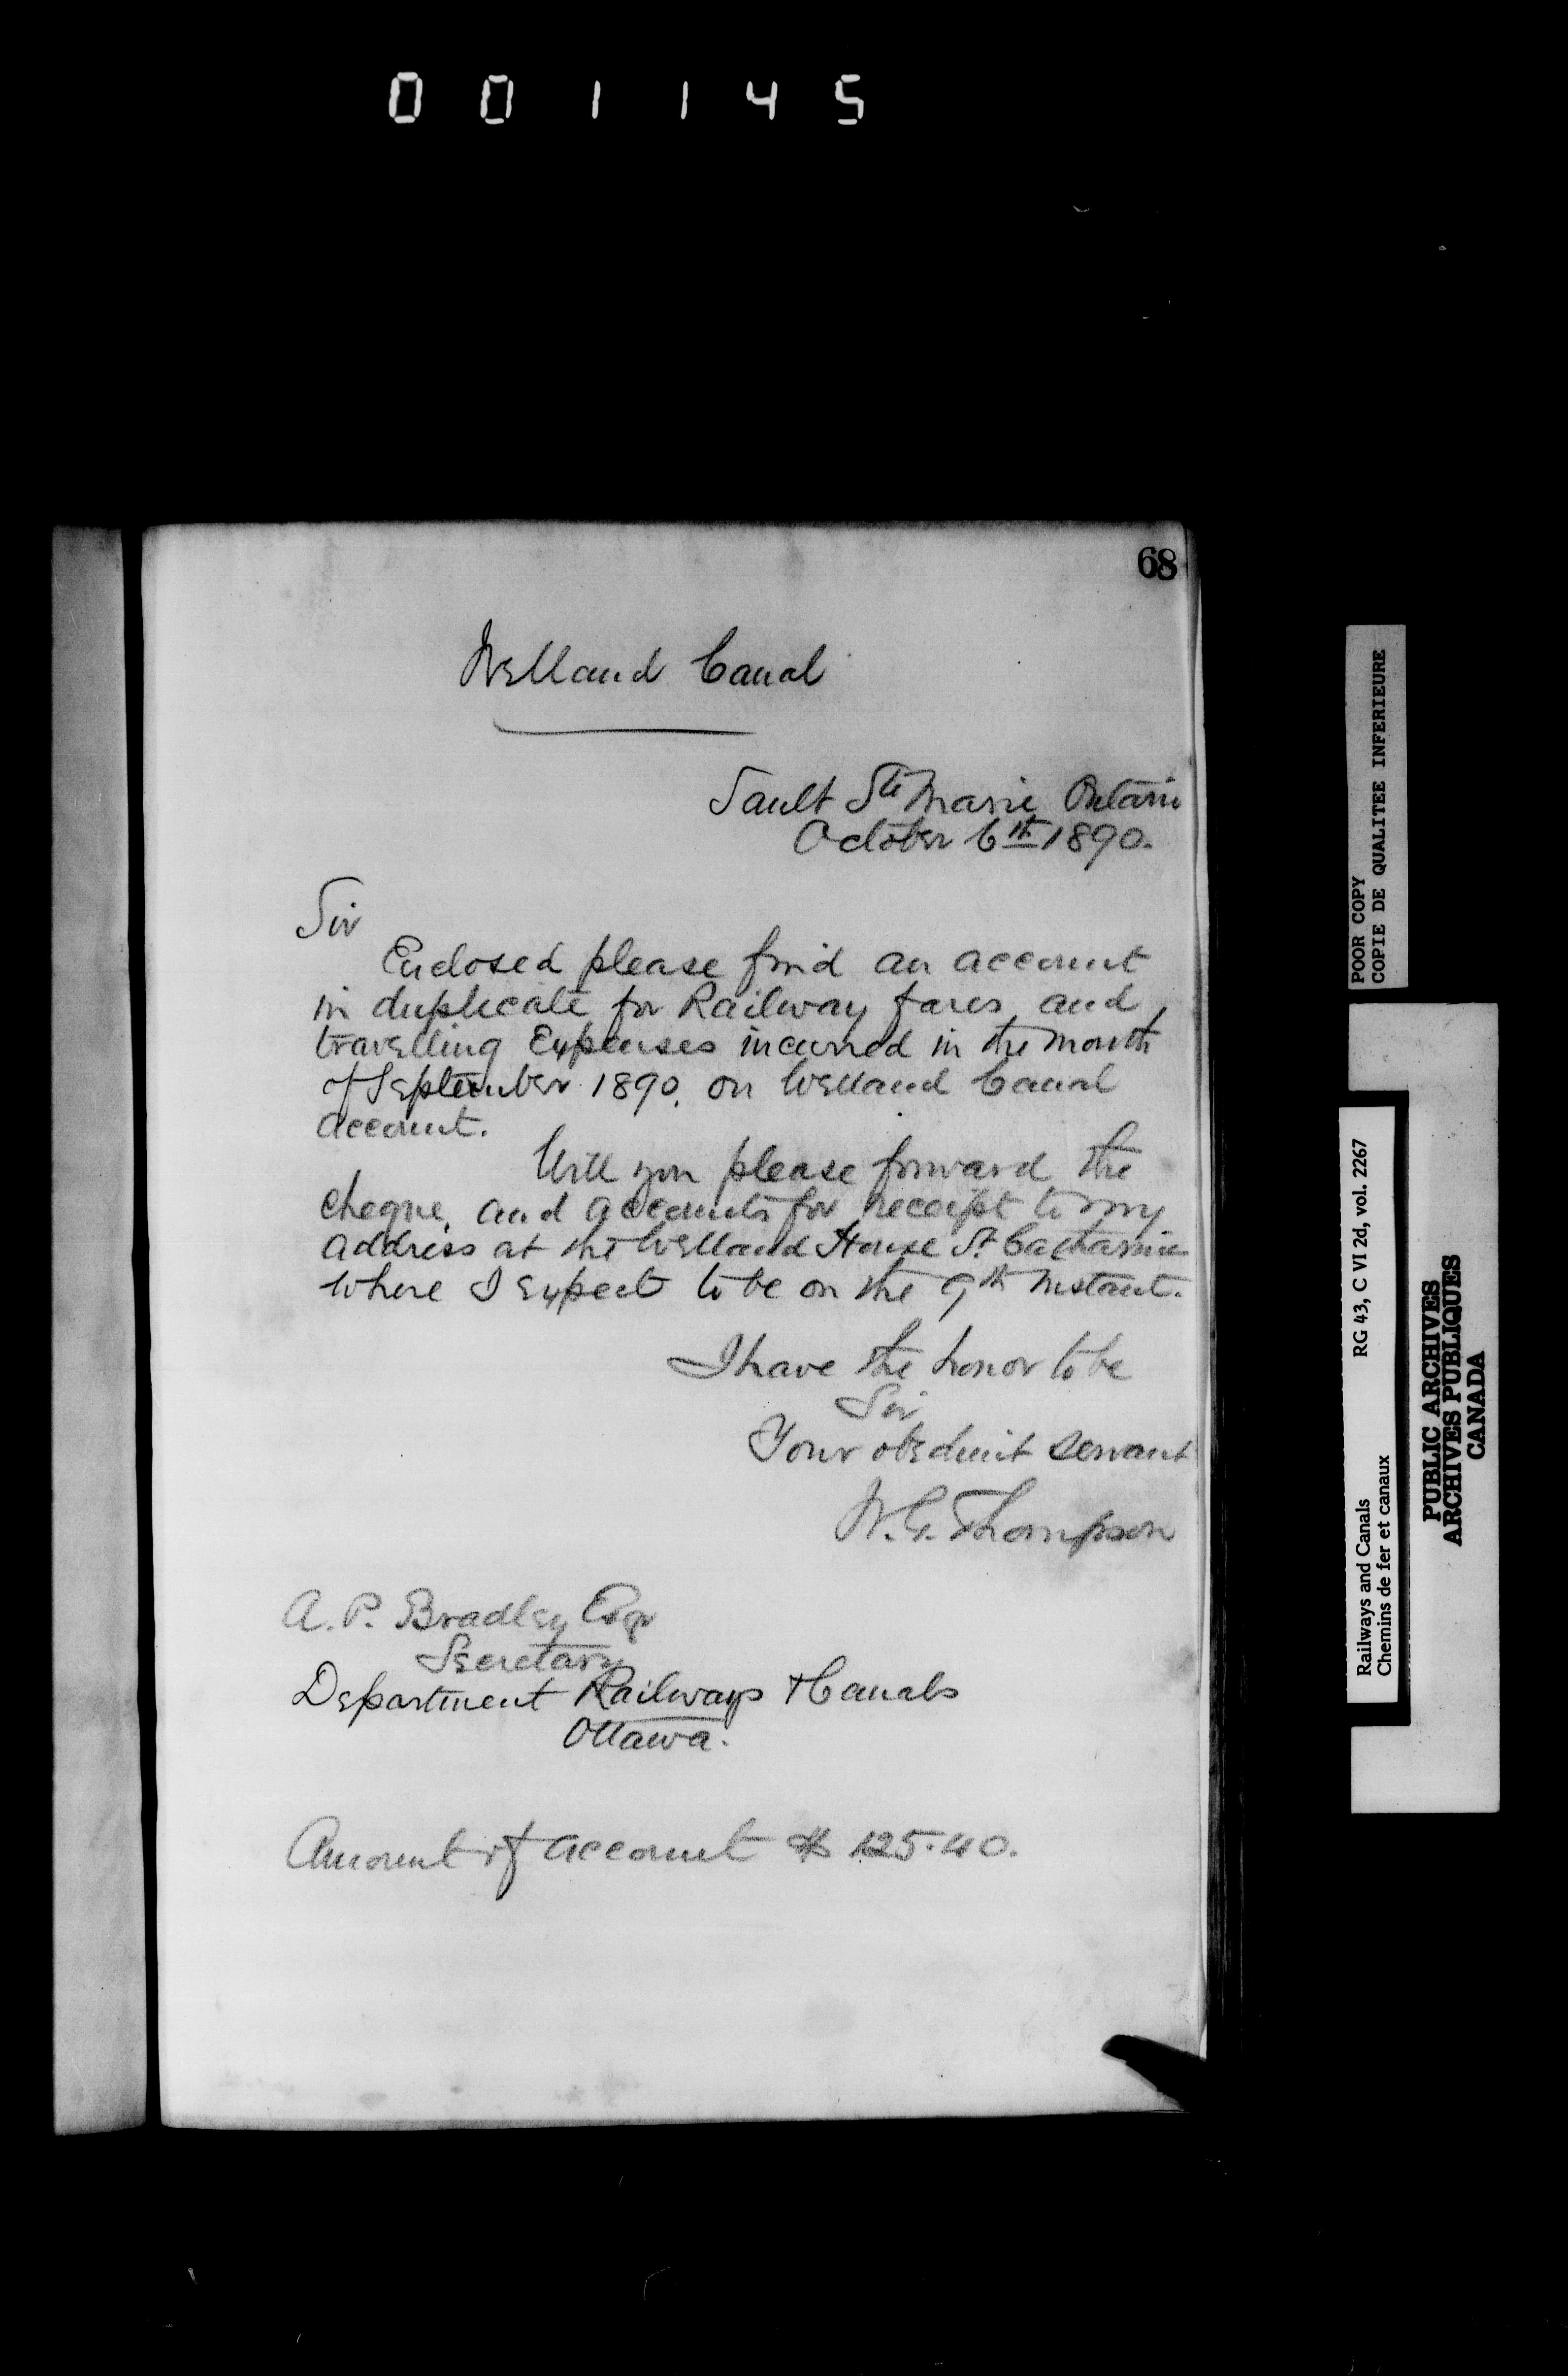 001145
68
Welland Canal
Sault Ste Marie Ontario
October 6th 1890.
Sir
Enclosed please find an account
in duplicate for Railway fares, and
travelling Expenses incurred in the month
of September 1890, on Welland Canal
account.
Will you please forward the
cheque, and accounts for receipt to my
address at the Welland House St. Catharines
where I expect to be on the 9th Instant.
I have the honor to be
Sir
Your obedient servant
W. G. Thompson
A. P. Bradley Esqr
Secretary
Department Railways & Canals
Ottawa.
Amount of account $ 125.40.
POOR COPY
COPIE DE QUALITEE INFERIEURE
Railways and Canals RG 43, C VI 2d, vol. 2267
Chemins de fer et canaux
PUBLIC ARCHIVES
ARCHIVES PUBLIQUES
CANADA